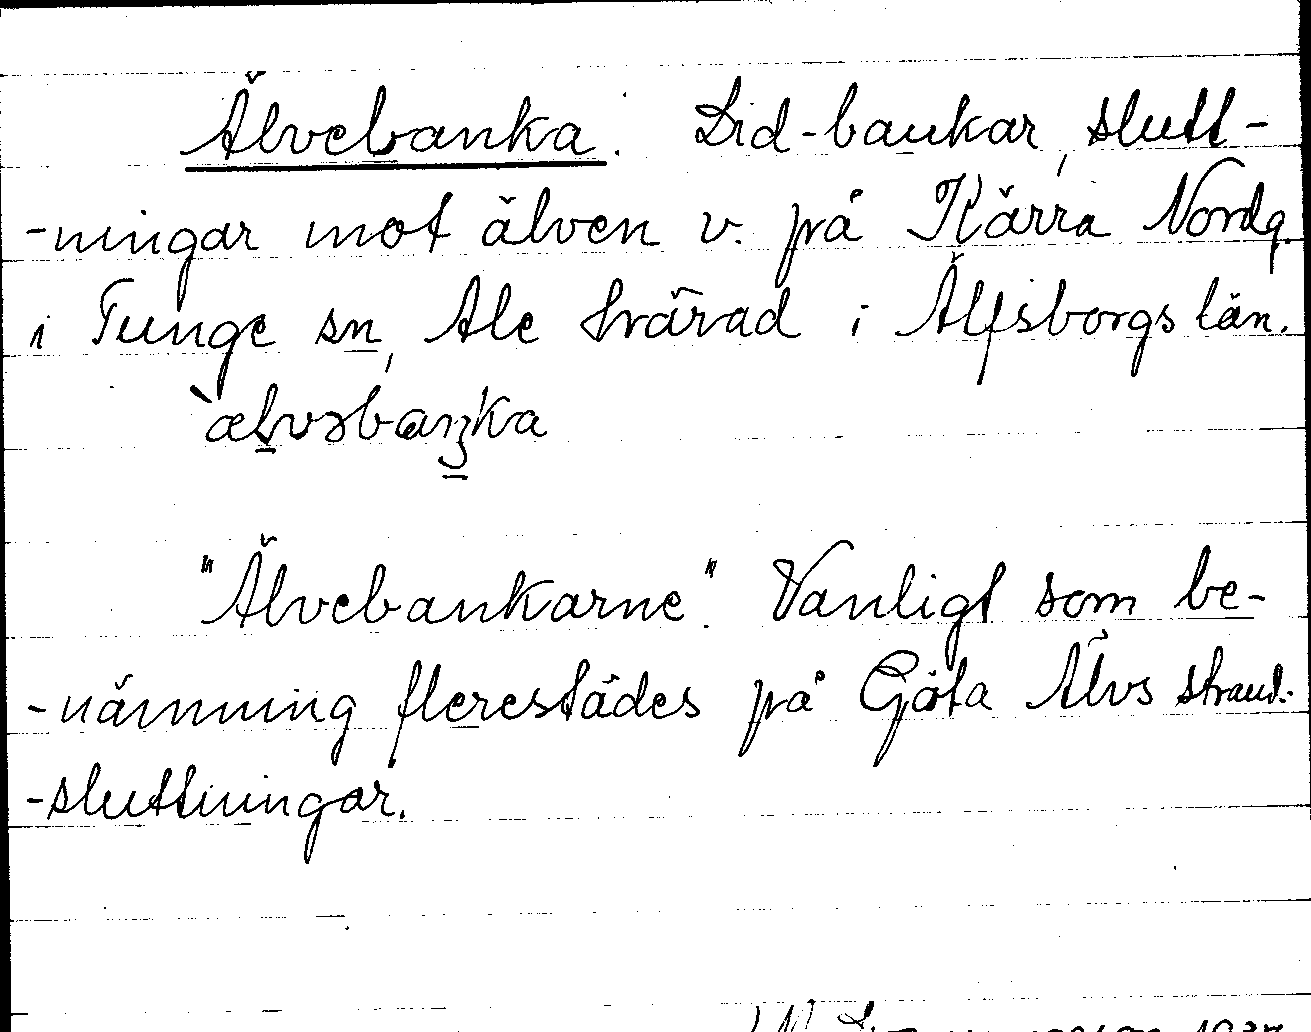 Älvebanka. Lid-bankar, slutt-
-ningar mot älven v. på Kärra Nordg.
i Tunge sn, Ale härad i Älfsborgs län.
`ælvəbaŋka
"Älvebankarne". Vanligt som be-
-nämning flerestädes på Göta Älvs strand-
-sluttningar.